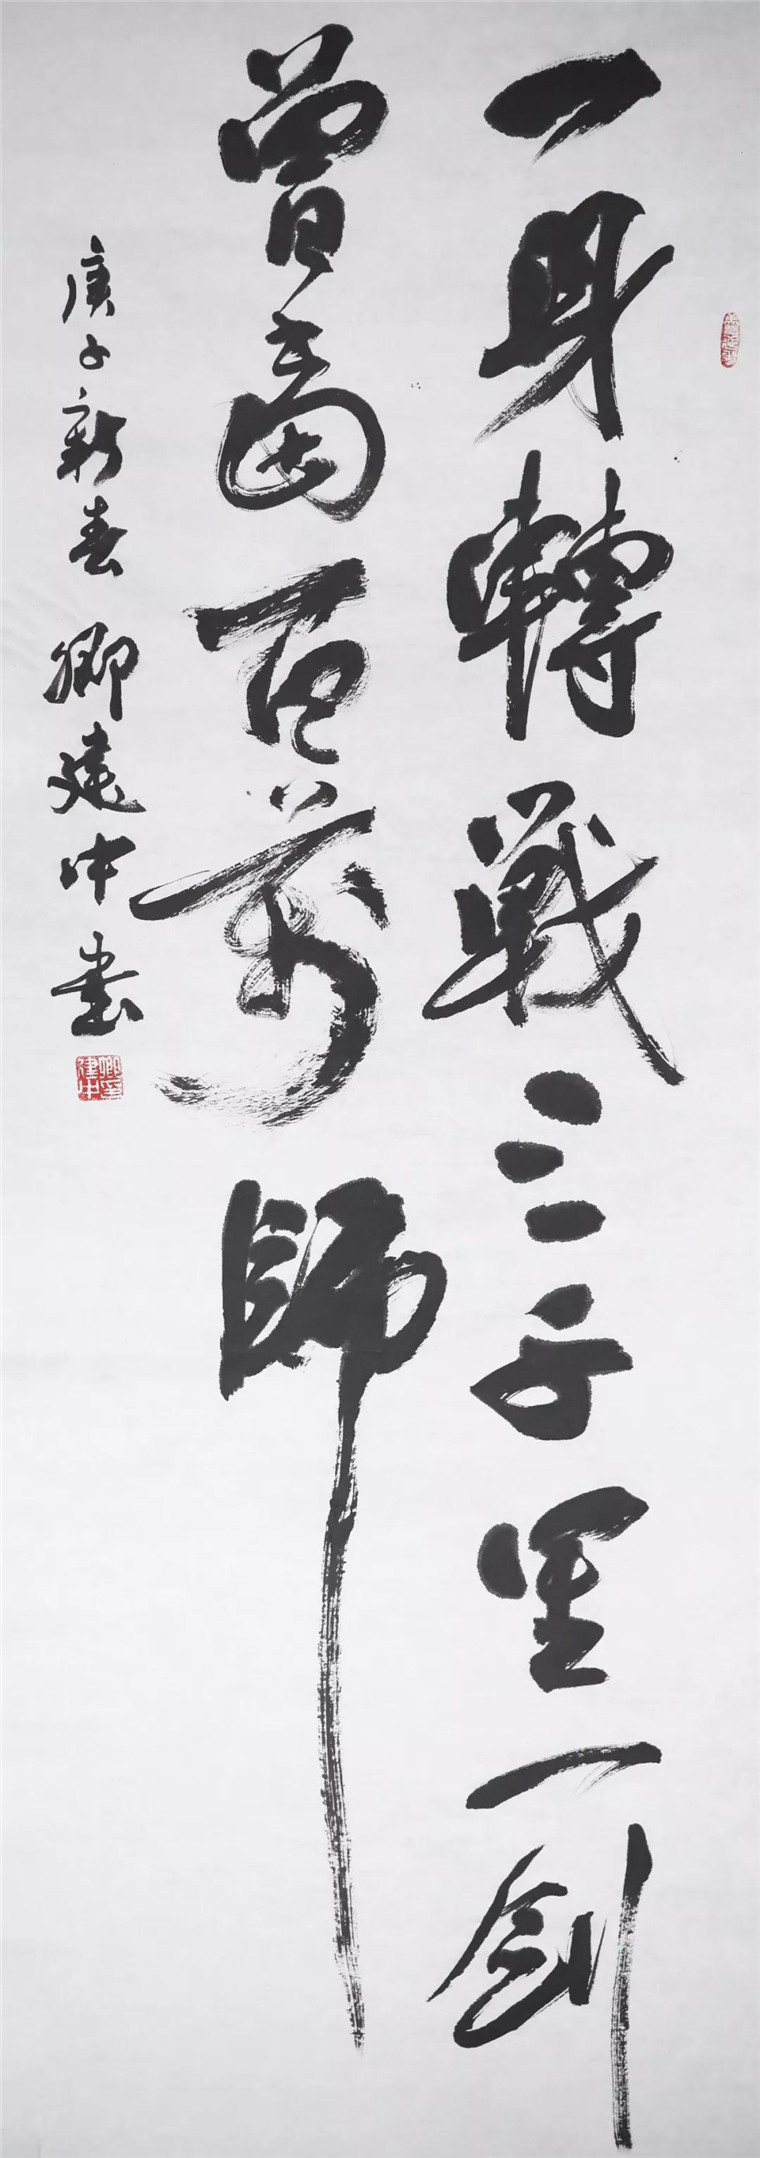 一身轉戰三千里一劍
曾當百萬師
庚子新春 卿建中書
卿建中